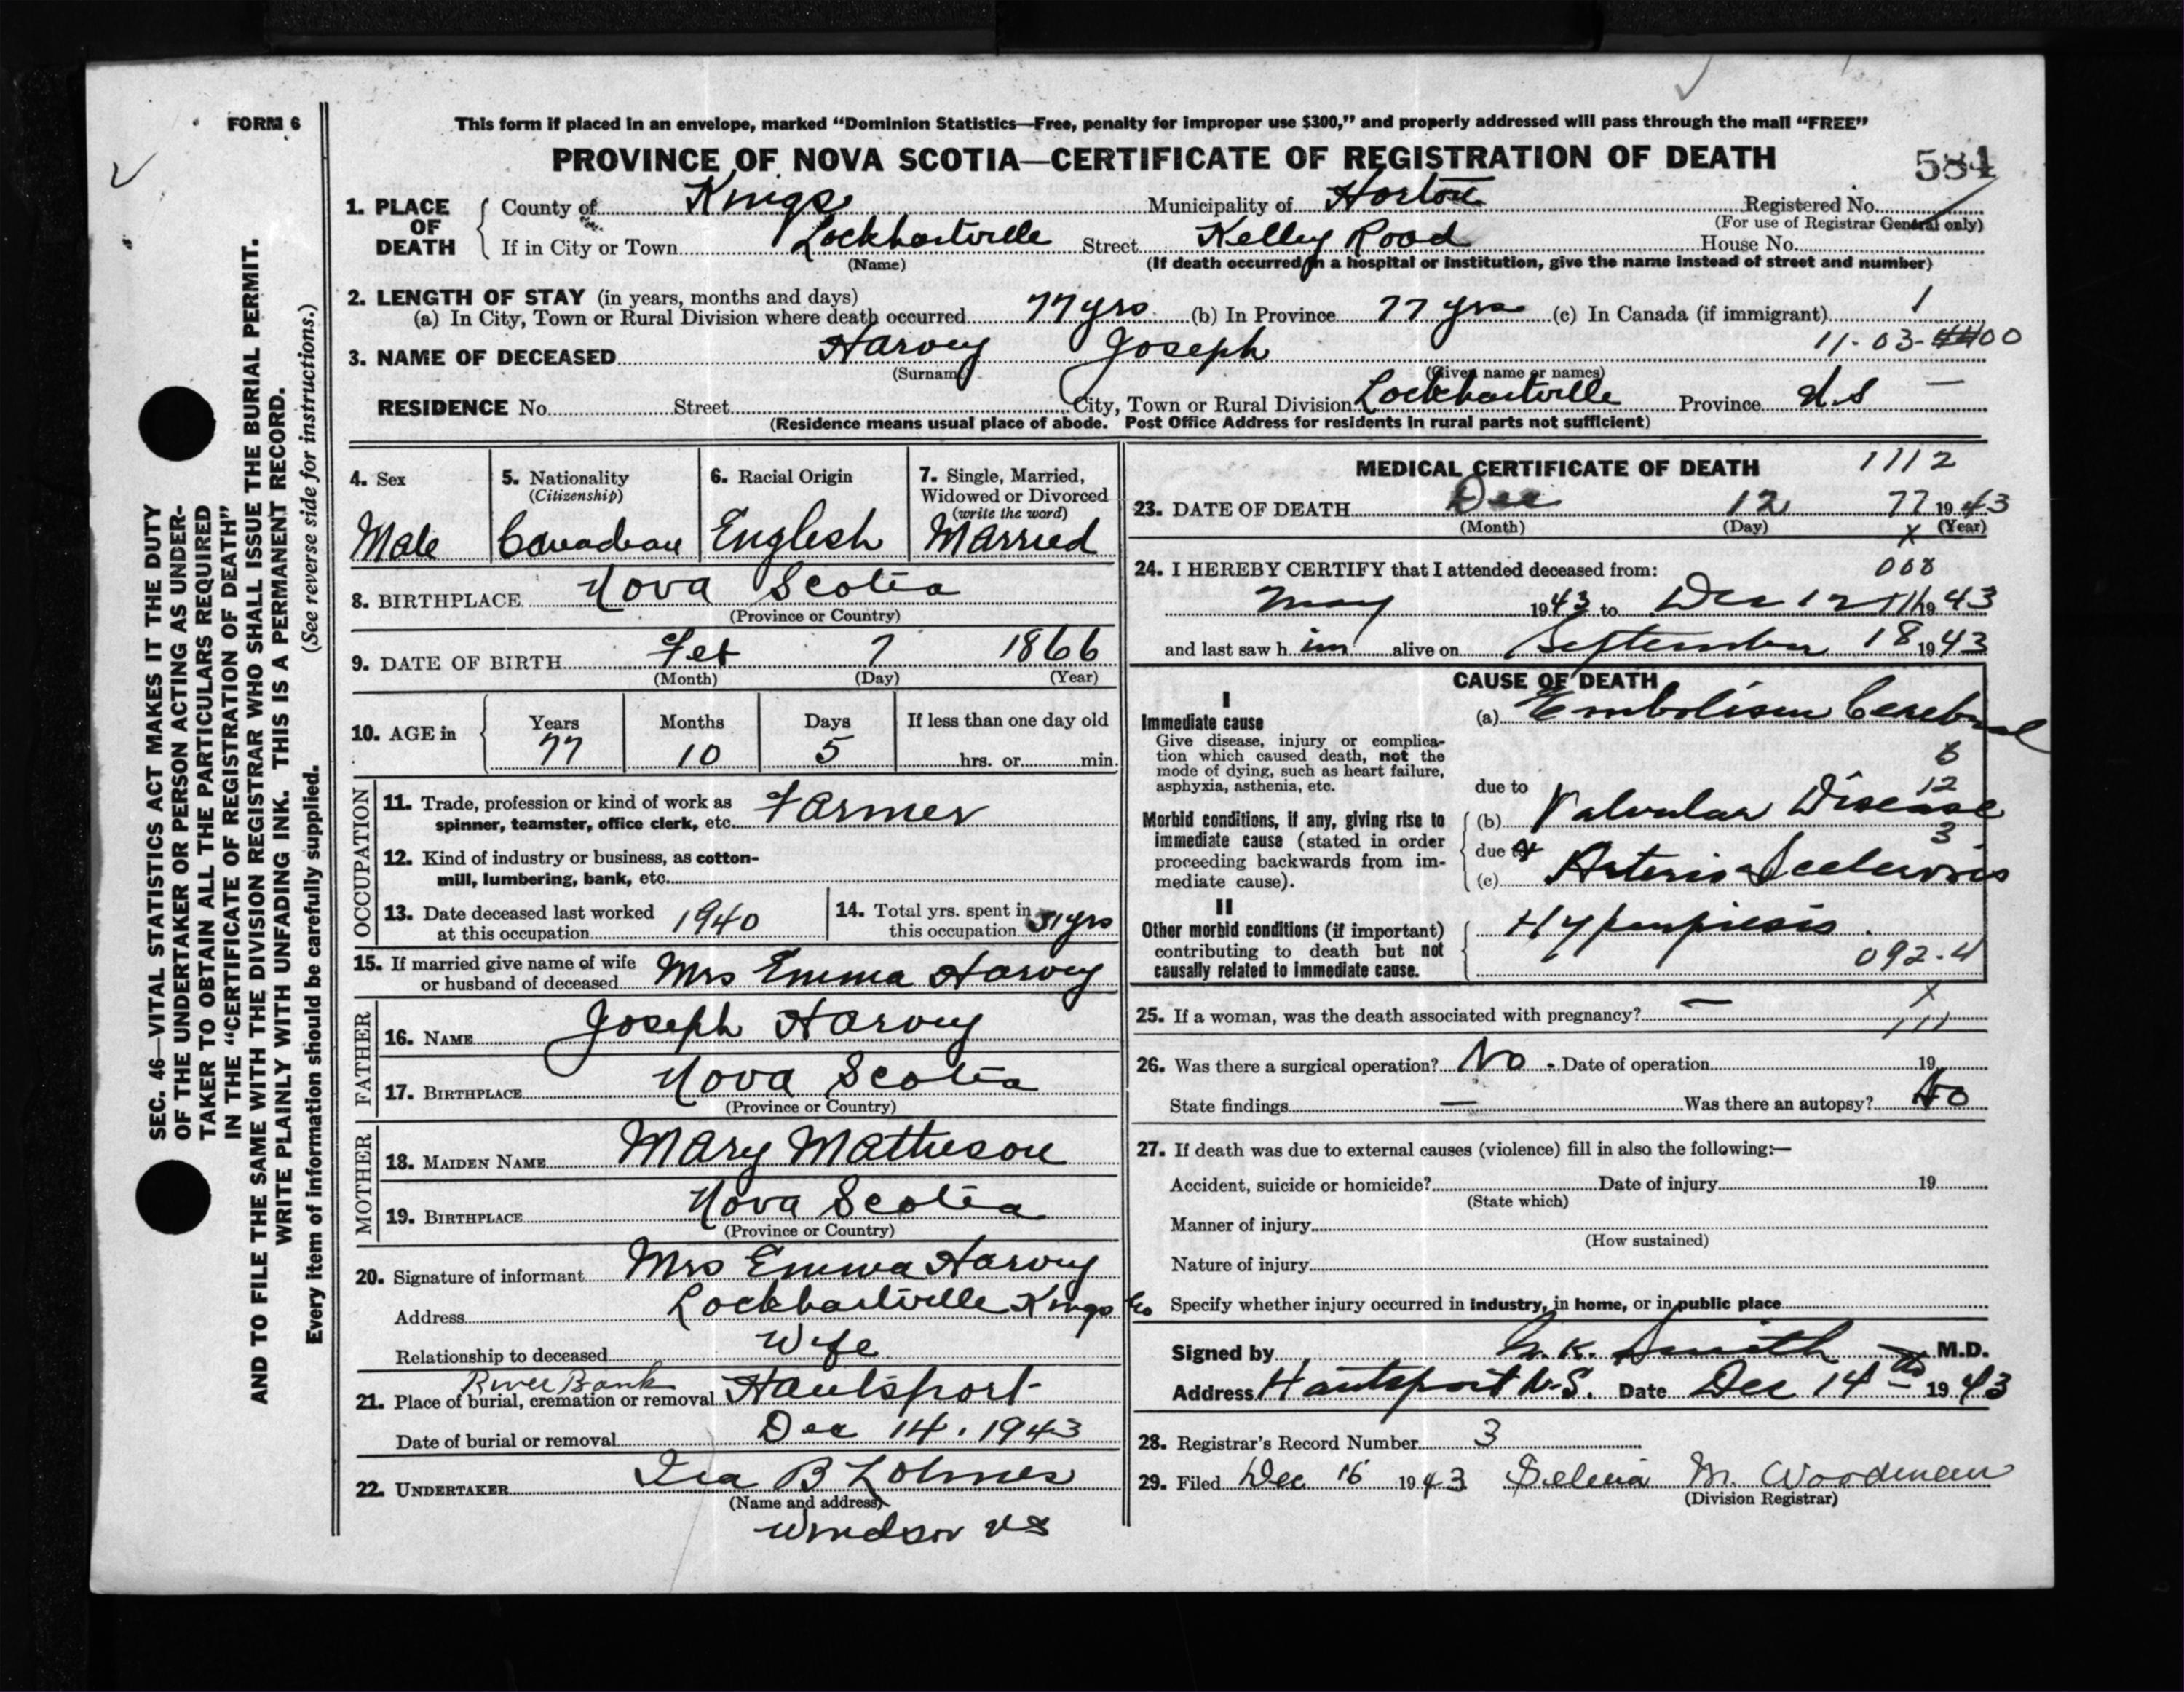 FORM 6
This form if placed in an envelope, marked "Dominion Statistics—Free, penalty for improper use $300," and properly addressed will pass through the mail "FREE"
PROVINCE OF NOVA SCOTIA—CERTIFICATE OF REGISTRATION OF DEATH
584
1. PLACE OF DEATH
County of Kings Municipality of Horton Registered No.
(For use of Registrar General only)
If in City or Town Lockhartville Street Kelley Road House No.
(Name) (If death occurred in a hospital or institution, give the name instead of street and number)
2. LENGTH OF STAY (in years, months and days)
(a) In City, Town or Rural Division where death occurred 77 yrs (b) In Province 77 yrs (c) In Canada (if immigrant) 1
11-03-00
3. NAME OF DECEASED Harvey Joseph
(Surname) (Given name or names)
RESIDENCE No. Street City, Town or Rural Division Lockhartville Province N.S —
(Residence means usual place of abode. Post Office Address for residents in rural parts not sufficient)
4. Sex
Male
5. Nationality
(Citizenship)
Canadian
6. Racial Origin
English
7. Single, Married,
Widowed or Divorced
(write the word)
Married
8. BIRTHPLACE Nova Scotia
(Province or Country)
9. DATE OF BIRTH Feb 7 1866
(Month) (Day) (Year)
10. AGE in
Years Months Days If less than one day old
77 10 5 hrs. or min.
OCCUPATION
11. Trade, profession or kind of work as
spinner, teamster, office clerk, etc. Farmer
12. Kind of industry or business, as cotton-
mill, lumbering, bank, etc.
13. Date deceased last worked
at this occupation 1940
14. Total yrs. spent in
this occupation yrs
15. If married give name of wife
or husband of deceased Mrs Emma Harvey
FATHER
16. NAME Joseph Harvey
17. BIRTHPLACE Nova Scotia
(Province or Country)
MOTHER
18. MAIDEN NAME Mary Matheson
19. BIRTHPLACE Nova Scotia
(Province or Country)
20. Signature of informant Mrs Emma Harvey
Address Lockhartville Kings Co
Relationship to deceased Wife
River Bank
21. Place of burial, cremation or removal Hantsport
Date of burial or removal Dec 14. 1943
22. UNDERTAKER Ira B
(Name and address)
Windsor NS
MEDICAL CERTIFICATE OF DEATH 1112
23. DATE OF DEATH Dec 12 77 1943
(Month) (Day) x (Year)
24. I HEREBY CERTIFY that I attended deceased from: 008
May 1943 to Dec 12th 1943
and last saw him alive on September 18 1943
CAUSE OF DEATH
I
Immediate cause
Give disease, injury or complica-
tion which caused death, not the
mode of dying, such as heart failure,
asphyxia, asthenia, etc.
(a) Embolism Cerebral
12
due to
Morbid conditions, if any, giving rise to
immediate cause (stated in order
proceeding backwards from im-
mediate cause).
(b) Valvular Disease
3
due to
(c) Arterio Sclerosis
II
Other morbid conditions (if important)
contributing to death but not
causally related to immediate cause.
Hyperpiesis.
092-4
25. If a woman, was the death associated with pregnancy? — x
111
26. Was there a surgical operation? No Date of operation 19
State findings — Was there an autopsy? No
27. If death was due to external causes (violence) fill in also the following:—
Accident, suicide or homicide? Date of injury 19
(State which)
Manner of injury
(How sustained)
Nature of injury
Specify whether injury occurred in industry, in home, or in public place
Signed by K. Smith M.D.
Address Hantsport N.S. Date Dec 14th 1943
28. Registrar's Record Number 3
29. Filed Dec 15 1943 Selena M. Woodman
(Division Registrar)
SEC. 46—VITAL STATISTICS ACT MAKES IT THE DUTY
OF THE UNDERTAKER OR PERSON ACTING AS UNDER-
TAKER TO OBTAIN ALL THE PARTICULARS REQUIRED
IN THE "CERTIFICATE OF REGISTRATION OF DEATH"
AND TO FILE THE SAME WITH THE DIVISION REGISTRAR WHO SHALL ISSUE THE BURIAL PERMIT.
WRITE PLAINLY WITH UNFADING INK. THIS IS A PERMANENT RECORD.
Every item of information should be carefully supplied. (See reverse side for instructions.)